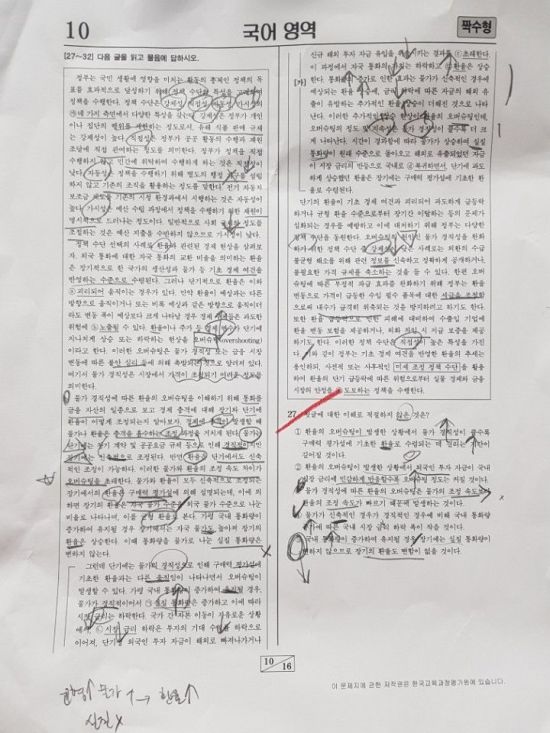 10
국어 영역
짝수형
[27~32] 다음 글을 읽고 물음에 답하시오.
정부는 국민 생활에 영향을 미치는 활동의 총체인 정책의 목
표를 효과적으로 달성하기 위해 정책 수단의 특성을
정책을 수행한다. 정책 수단은 강제성, 직접성, 자동성, 가시성의
네 가지 측면에서 다양한 특성을 갖는다. 강제성은 정부가 개인
이나 집단의 행위를 제한하는 정도로서, 유해 식품 판매 규제
는 강제성이 높다. 직접성은 정부가 공공 활동의 수행과 재원
조달에 직접 관여하는 정도를 의미한다. 정부가 정책을 직접
수행하지 않고 민간에 위탁하여 수행하게 하는 것은 직접성이
낮다. 자동성은 정책을 수행하기 위해 별도의 행정 기구를 설립
하지 않고 기존의 조직을 활용하는 정도를 말한다. 전기 자동차
보조금 제도를 기존의 시청 환경과에서 시행하는 것은 자동성이
높다. 가시성은 예산 수립 과정에서 정책을 수행하기 위한 재원이
명시적으로 드러나는 정도이다. 일반적으로 사회 규제의 정도를
조절하는 것은 예산 지출을 수반하지 않으므로 가시성이 낮다.
정책 수단 선택의 사례로 환율과 관련된 경제 현상을 살펴보
자. 외국 통화에 대한 자국 통화의 교환 비율을 의미하는 환율
은 장기적으로 한 국가의 생산성과 물가 등 기초 경제 여건을
반영하는 수준으로 수렴된다. 그러나 단기적으로 환율은 이와
ⓐ괴리되어 움직이는 경우가 있다. 만약 환율이 예상과는 다른
방향으로 움직이거나 또는 비록 예상과 같은 방향으로 움직이더
라도 변동 폭이 예상보다 크게 나타날 경우 경제 주체들은 과도한
위험에 ⓑ노출될 수 있다. 환율이나 주가 등 경제 변수가 단기에
지나치게 상승 또는 하락하는 현상을 오버슈팅(overshooting)
이라고 한다. 이러한 오버슈팅은 물가 경직성 또는 금융 시장
변동에 따른 불안 심리 등에 의해 촉발되는 것으로 알려져 있다.
여기서 물가 경직성은 시장에서 가격이 조정되기 어려운 정도를
의미한다.
물가 경직성에 따른 환율의 오버슈팅을 이해하기 위해 통화를
금융 자산의 일종으로 보고 경제 충격에 대해 장기와 단기에
환율이 어떻게 조정되는지 알아보자. 경제에 충격이 발생할 때
물가나 환율은 충격을 흡수하는 조정 과정을 거치게 된다. 물가는
단기에는 장기 계약 및 공공요금 규제 등으로 인해 경직적이지만
장기에는 신축적으로 조정된다. 반면 환율은 단기에서도 신축
적인 조정이 가능하다. 이러한 물가와 환율의 조정 속도 차이가
오버슈팅을 초래한다. 물가와 환율이 모두 신축적으로 조정되는
장기에서의 환율은 구매력 평가설에 의해 설명되는데, 이에 의
하면 장기의 환율은 자국 물가 수준을 외국 물가 수준으로 나눈
비율로 나타나며, 이를 균형 환율로 본다. 가령 국내 통화량이
증가하여 유지될 경우 장기에서는 자국 물가도 높아져 장기의
환율은 상승한다. 이때 통화량을 물가로 나눈 실질 통화량은
변하지 않는다.
그런데 단기에는 물가의 경직성으로 인해 구매력 평가설에
기초한 환율과는 다른 움직임이 나타나면서 오버슈팅이
발생할 수 있다. 가령 국내 통화량이 증가하여 유지될 경우,
물가가 경직적이어서 실질 통화량은 증가하고 이에 따라
시장 금리는 하락한다. 국가 간 자본 이동이 자유로운 상황
에서, 시장 금리 하락은 투자의 기대 수익률 하락으로
이어져, 단기성 외국인 투자 자금이 해외로 빠져나가거나
[가]
신규 해외 투자 자금 유입을 위축시키는 결과를 초래한다.
이 과정에서 자국 통화의 가치는 하락하고 환율은 상승한
다. 통화량의 증가로 인한 효과는 물가가 신축적인 경우에
예상되는 환율 상승에, 금리 하락에 따른 자금의 해외 유
출이 유발하는 추가적인 환율 상승이 더해진 것으로 나타
난다. 이러한 추가적인 상승 현상이 환율의 오버슈팅인데,
오버슈팅의 정도 및 지속성은 물가 경직성이 클수록 더 크
게 나타난다. 시간이 경과함에 따라 물가가 상승하여 실질
통화량이 원래 수준으로 돌아오고 해외로 유출되었던 자금
이 시장 금리의 반등으로 국내로 복귀하면서, 단기에 과도
하게 상승했던 환율은 장기에는 구매력 평가설에 기초한 환
율로 수렴된다.
단기의 환율이 기초 경제 여건과 괴리되어 과도하게 급등락
하거나 균형 환율 수준으로부터 장기간 이탈하는 등의 문제가
심화되는 경우를 예방하고 이에 대처하기 위해 정부는 다양한
정책 수단을 동원한다. 오버슈팅의 원인인 물가 경직성을 완화
하기 위한 정책 수단 중 강제성이 낮은 사례로는 외환의 수급
불균형 해소를 위해 관련 정보를 신속하고 정확하게 공개하거나,
불필요한 가격 규제를 축소하는 것을 들 수 있다. 한편 오버
슈팅에 따른 부정적 파급 효과를 완화하기 위해 정부는 환율
변동으로 가격이 급등한 수입 필수 품목에 대한 세금을 조절함
으로써 내수가 급격히 위축되는 것을 방지하려고 하기도 한다.
또한 환율 급등락으로 인한 피해에 대비하여 수출입 기업에
환율 변동 보험을 제공하거나, 외화 차입 시 지급 보증을 제공
하기도 한다. 이러한 정책 수단은 직접성이 높은 특성을 가진
다. 이와 같이 정부는 기초 경제 여건을 반영한 환율의 추세는
용인하되, 사전적 또는 사후적인 미세 조정 정책 수단을 활용
하여 환율의 단기 급등락에 따른 위험으로부터 실물 경제와 금융
시장의 안정을 도모하는 정책을 수행한다.
27. 윗글에 대한 이해로 적절하지 않은 것은?
① 환율의 오버슈팅이 발생한 상황에서 물가 경직성이 클수록
구매력 평가설에 기초한 환율로 수렴되는 데 걸리는 기간이
길어질 것이다.
② 환율의 오버슈팅이 발생한 상황에서 외국인 투자 자금이 국내
시장 금리에 민감하게 반응할수록 오버슈팅 정도는 커질 것이다.
③ 물가 경직성에 따른 환율의 오버슈팅은 물가의 조정 속도보다
환율의 조정 속도가 빠르기 때문에 발생하는 것이다.
④ 물가가 신축적인 경우가 경직적인 경우에 비해 국내 통화량
증가에 따른 국내 시장 금리 하락 폭이 작을 것이다.
⑤ 국내 통화량이 증가하여 유지될 경우 장기에는 실질 통화량이
변하지 않으므로 장기의 환율도 변함이 없을 것이다.
10
16
이 문제지에 관한 저작권은 한국교육과정평가원에 있습니다.
물가 ↑ → 환율↑